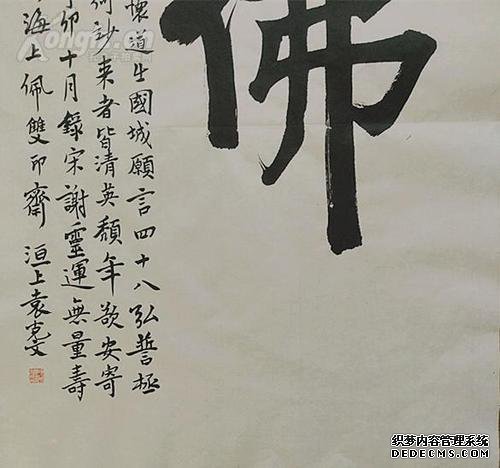 佛
懷道出國城願言四十八弘誓拯
何玅来者皆清英頹年欲安寄
丁卯十月錄宋謝靈運無量壽
海上佩雙印齋 洹上袁克文
织梦内容管理系统
DEDECMS.COM